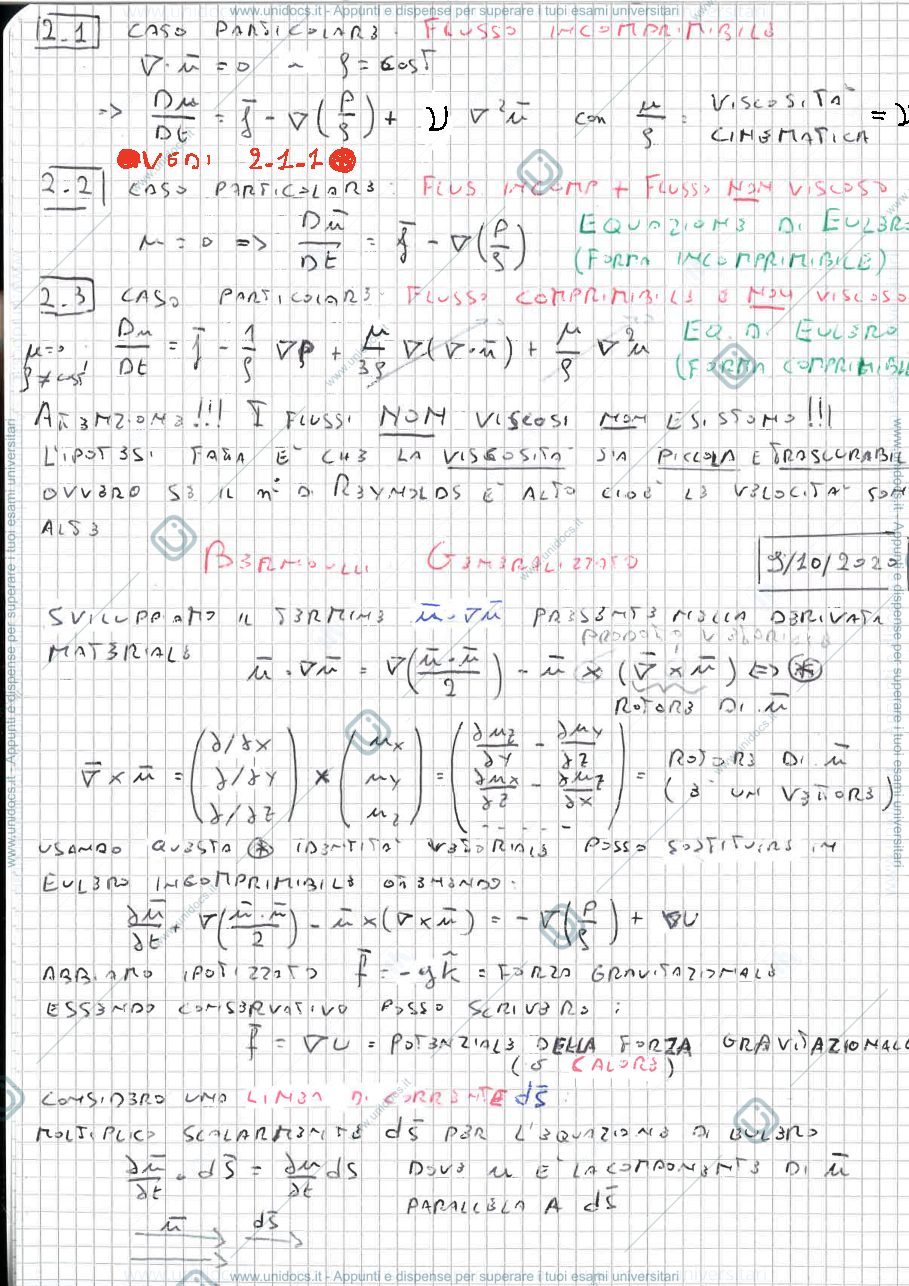 www.unidocs.it - Appunti e dispense per superare i tuoi esami universitari
2.1 CASO PARTICOLARE: FLUSSO INCOMPRIMIBILE
∇·ū = 0 ~ ρ = cosT
=> Du/Dt = f̄ - ∇(P/ρ) + ν ∇²ū con μ/ρ = VISCOSITA' CINEMATICA = ν
VEDI 2-1-1
2.2 CASO PARTICOLARE: FLUS INCOMP + FLUSSO NON VISCOSO
μ = 0 => Dū/Dt = f̄ - ∇(P/ρ) EQUAZIONE DI EULERO
(FORMA INCOMPRIMIBILE)
2.3 CASO PARTICOLARE: FLUSSO COMPRIMIBILE E NON VISCOSO
μ=0 ρ≠cost Du/Dt = f̄ - 1/ρ ∇P + μ/3ρ ∇(∇·ū) + μ/ρ ∇²u EQ. DI EULERO
(FORMA COMPRIMIBIL
ATTENZIONE!!! I FLUSSI NON VISCOSI NON ESISTONO!!!
L'IPOTESI FATTA E' CHE LA VISCOSITA' SIA PICCOLA E TRASCURABIL
OVVERO SE IL n° DI REYNOLDS E' ALTO CIOE' LE VELOCITA' SON
ALTE
BERNOULLI GENERALIZZATO
9/10/2020
SVILUPPIAMO IL TERMINE ū·∇ū PRESENTE NELLA DERIVATA
MATERIALE
PRODOTTO VETTORIALE
ū · ∇ū = ∇(ū·ū/2) - ū × (∇̄ × ū) <=> ⊛
ROTORE DI ū
∇̄ × ū = (∂/∂x ∂/∂y ∂/∂z) × (ux uy uz) = (∂uz/∂y - ∂uy/∂z ∂ux/∂z - ∂uz/∂x - - - - -) = ROTORE DI ū
(E' UN VETTORE)
USANDO QUESTA ⊛ IDENTITA' VETTORIALE POSSO SOSTITUIRE IN
EULERO INCOMPRIMIBILE OTTENENDO:
∂ū/∂t + ∇(ū·ū/2) - ū × (∇×ū) = - ∇(P/ρ) + ∇U
ABBIAMO IPOTIZZATO f̄ = -gk̂ = FORZA GRAVITAZIONALE
ESSENDO CONSERVATIVO POSSO SCRIVERO:
f̄ = ∇U = POTENZIALE DELLA FORZA GRAVITAZIONALE
(O CALORE)
CONSIDERO UNA LINEA DI CORRENTE ds̄:
MOLTIPLICO SCALARMENTE ds̄ PER L'EQUAZIONE DI EULERO
∂ū/∂t · ds̄ = ∂u/∂t ds DOVE u E' LA COMPONENTE DI ū
PARALLELA A ds̄
ū ds̄
www.unidocs.it - Appunti e dispense per superare i tuoi esami universitari